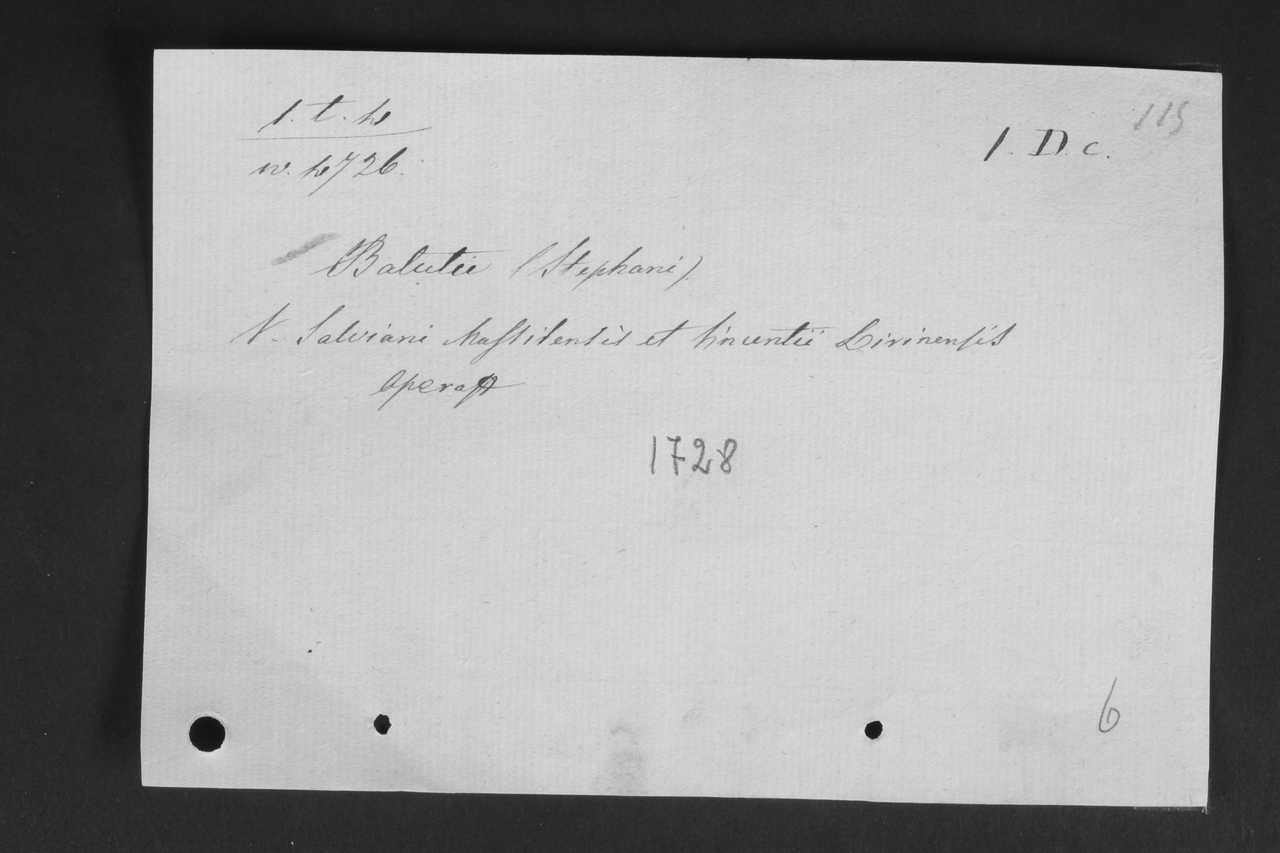 1. t. 4
115
1. D. c.
w. 4726.
Balutii (Stephani)
V. Salviani Massilensis et Vincentii Lirinensis
opera
1728
6